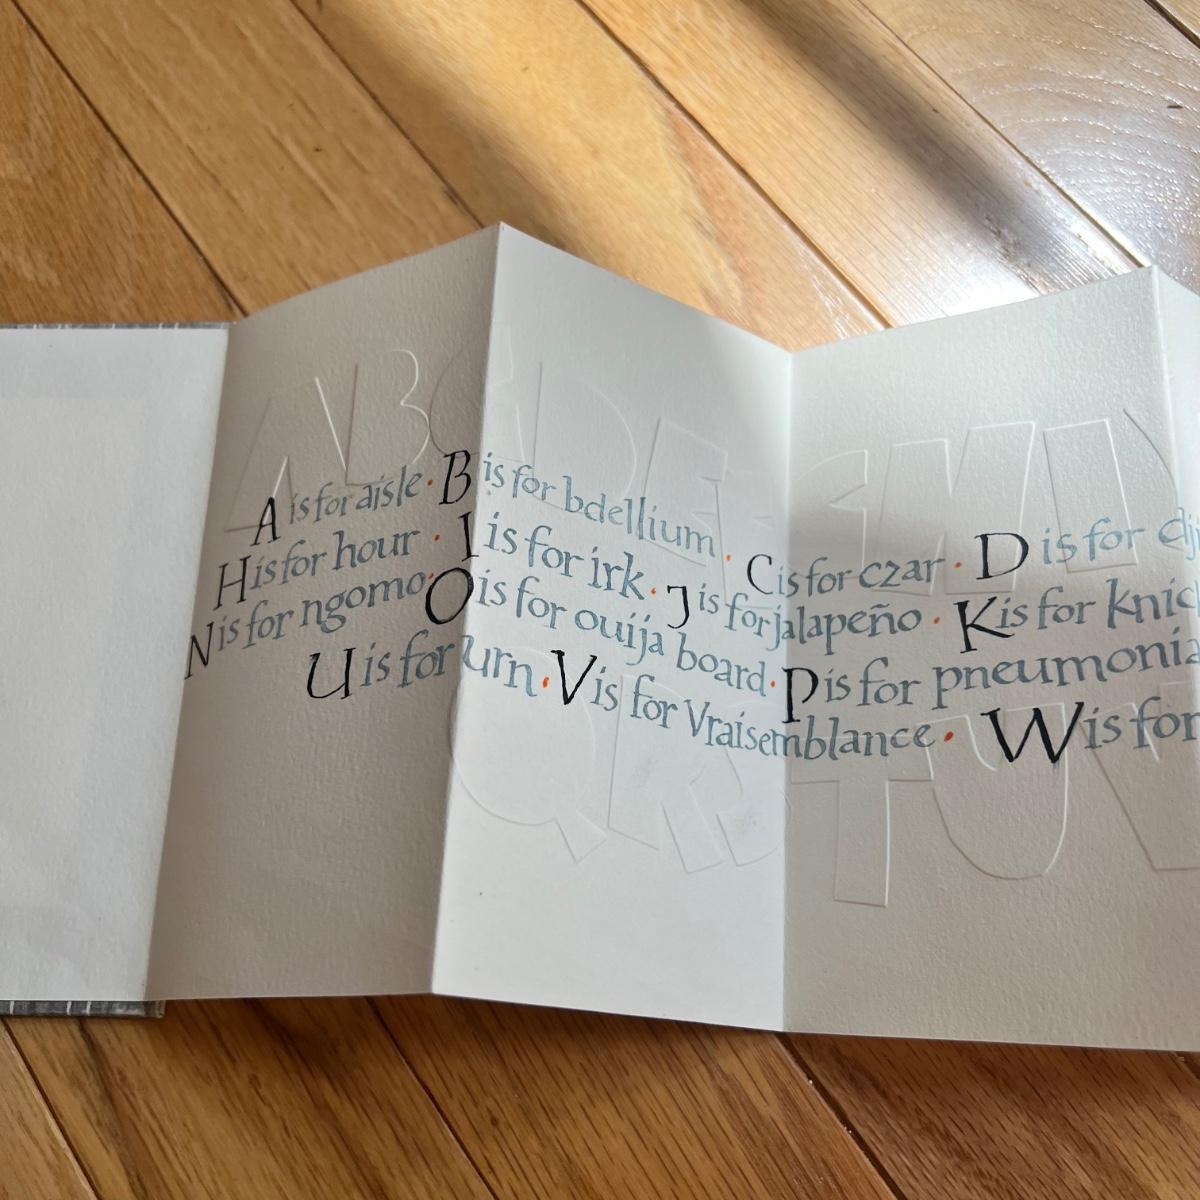 A is for aisle · B is for bdellium · C is for czar · D is for
H is for hour · I is for irk · J is for jalapeño · K is for
N is for ngomo · O is for ouija board · P is for pneumonia
U is for urn · V is for Vraisemblance · W is for